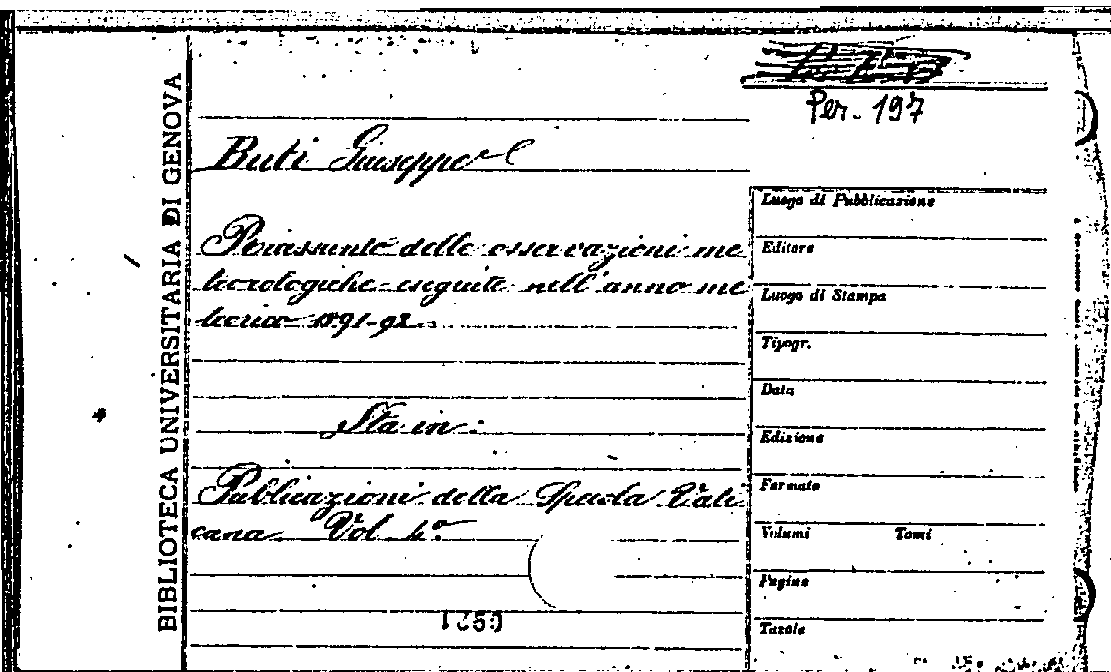 BIBLIOTECA UNIVERSITARIA DI GENOVA
Per. 197
Buti Giuseppe
Riassunto delle osservazioni me
teorologiche eseguite nell'anno me
teorico 1891-92.
Sta in:
Pubblicazioni della Specola Vati
cana Vol. 4º
Luogo di Pubblicazione
Editore
Luogo di Stampa
Tipogr.
Data
Edizione
Formato
Volumi Tomi
Pagine
Tavole